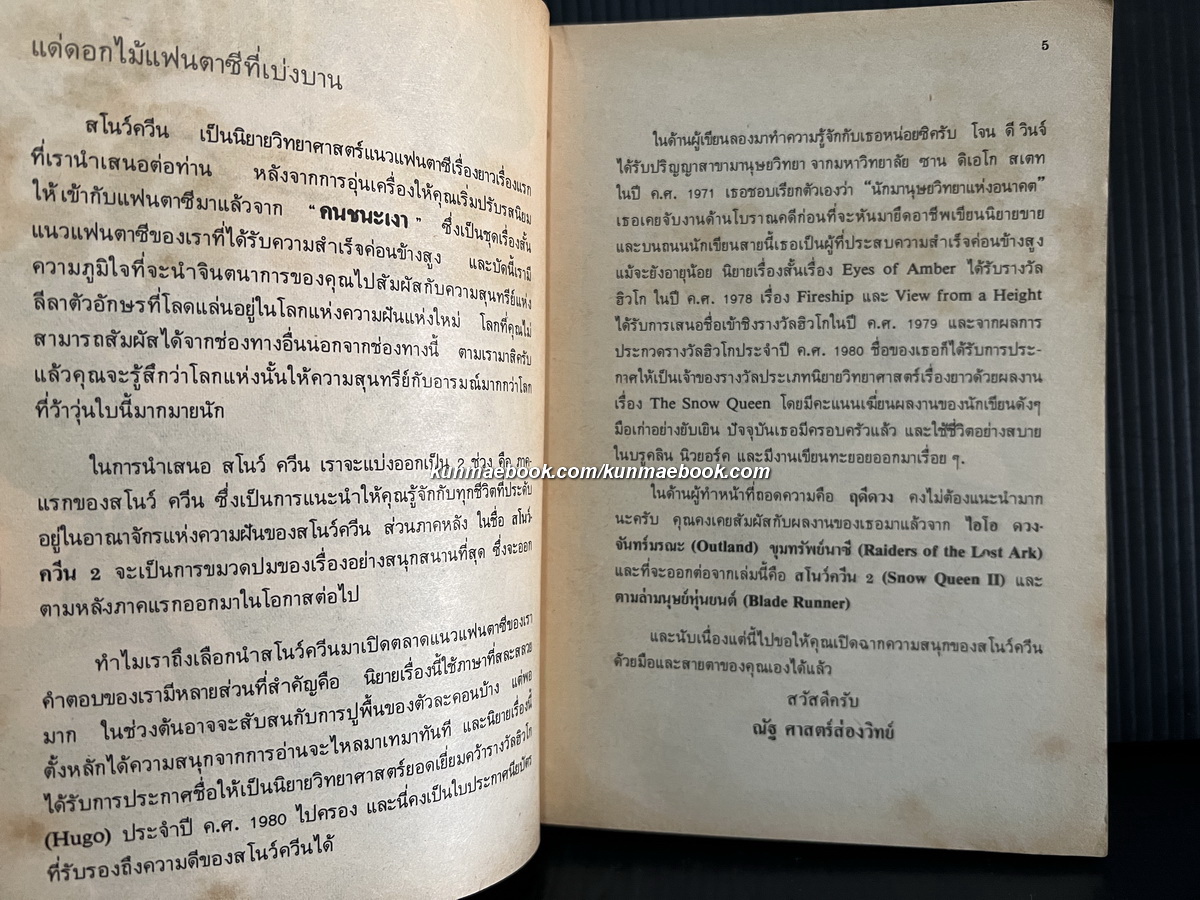 แด่ดอกไม้แฟนตาซีที่เบ่งบาน
สโนว์ควีน เป็นนิยายวิทยาศาสตร์แนวแฟนตาซีเรื่องยาวเรื่องแรก
ที่เรานำเสนอต่อท่าน หลังจากการอุ่นเครื่องให้คุณเริ่มปรับรสนิยม
ให้เข้ากับแฟนตาซีมาแล้วจาก “คนชนะเงา” ซึ่งเป็นชุดเรื่องสั้น
แนวแฟนตาซีของเราที่ได้รับความสำเร็จค่อนข้างสูง และบัดนี้เรามี
ความภูมิใจที่จะนำจินตนาการของคุณไปสัมผัสกับความสุนทรีย์แห่ง
ลีลาตัวอักษรที่โลดแล่นอยู่ในโลกแห่งความฝันแห่งใหม่ โลกที่คุณไม่
สามารถสัมผัสได้จากช่องทางอื่นน่อกจากช่องทางนี้ ตามเรามาสิครับ
แล้วคุณจะรู้สึกว่าโลกแห่งนั้นให้ความสุนทรีย์กับอารมณ์มากกว่าโลก
ที่ว้าวุ่นใบนี้มากมายนัก
ในการนำเสนอ สโนว์ ควีน เราจะแบ่งออกเป็น 2 ช่วง คือ ภาค-
แรกของสโนว์ ควีน ซึ่งเป็นการแนะนำให้คุณรู้จักกับทุกชีวิตที่ประดับ
อยู่ในอาณาจักรแห่งความฝันของสโนว์ควีน ส่วนภาคหลัง ในชื่อ สโนว์-
ควีน 2 จะเป็นการขมวดปมของเรื่องอย่างสนุกสนานที่สุด ซึ่งจะออก
ตามหลังภาคแรกออกมาในโอกาสต่อไป
ทำไมเราถึงเลือกนำสโนว์ควีนมาเปิดตลาดแนวแฟนตาซีของเรา
คำตอบของเรามีหลายส่วนที่สำคัญคือ นิยายเรื่องนี้ใช้ภาษาที่สละสลวย
มาก ในช่วงต้นอาจจะสับสนกับการปูพื้นของตัวละคอนบ้าง แต่พอ
ตั้งหลักได้ความสนุกจากการอ่านจะไหลมาเทมาทันที และนิยายเรื่องนี้
ได้รับการประกาศชื่อให้เป็นนิยายวิทยาศาสตร์ยอดเยี่ยมคว้ารางวัลฮิวโก
(Hugo) ประจำปี ค.ศ. 1980 ไปครอง และนี่คงเป็นใบประกาศนียบัตร
ที่รับรองถึงความดีของสโนว์ควีนได้
5
ในด้านผู้เขียนลองมาทำความรู้จักกับเธอหน่อยซิครับ โจน ดี วินจ์
ได้รับปริญญาสาขามานุษยวิทยา จากมหาวิทยาลัย ซาน ดิเอโก สเตท
ในปี ค.ศ. 1971 เธอชอบเรียกตัวเองว่า “นักมานุษยวิทยาแห่งอนาคต”
เธอเคยจับงานด้านโบราณคดีก่อนที่จะหันมายึดอาชีพเขียนนิยายขาย
และบนถนนนักเขียนสายนี้เธอเป็นผู้ที่ประสบความสำเร็จค่อนข้างสูง
แม้จะยังอายุน้อย นิยายเรื่องสั้นเรื่อง Eyes of Amber ได้รับรางวัล
ฮิวโก ในปี ค.ศ. 1978 เรื่อง Fireship และ View from a Height
ได้รับการเสนอชื่อเข้าชิงรางวัลฮิวโกในปี ค.ศ. 1979 และจากผลการ
ประกวดรางวัลฮิวโกประจำปี ค.ศ. 1980 ชื่อของเธอก็ได้รับการประ-
กาศให้เป็นเจ้าของรางวัลประเภทนิยายวิทยาศาสตร์เรื่องยาวด้วยผลงาน
เรื่อง The Snow Queen โดยมีคะแนนเฆี่ยนผลงานของนักเขียนดังๆ
มือเก่าอย่างยับเยิน ปัจจุบันเธอมีครอบครัวแล้ว และใช้ชีวิตอย่างสบาย
ในบรุคลิน นิวยอร์ค และมีงานเขียนทะยอยออกมาเรื่อย ๆ.
kunmaebook.com/kunmaebook.com
ในด้านผู้ทำหน้าที่ถอดความคือ ฤดีดวง คงไม่ต้องแนะนำมาก
นะครับ คุณคงเคยสัมผัสกับผลงานของเธอมาแล้วจาก ไอโอ ดวง-
จันทร์มรณะ (Outland) ขุมทรัพย์นาซี (Raiders of the Lost Ark)
และที่จะออกต่อจากเล่มนี้คือ สโนว์ควีน 2 (Snow Queen II) และ
ตามล่ามนุษย์หุ่นยนต์ (Blade Runner)
และนับเนื่องแต่นี้ไปขอให้คุณเปิดฉากความสนุกของสโนว์ควีน
ด้วยมือและสายตาของคุณเองได้แล้ว
สวัสดีครับ
ณัฐ ศาสตร์ส่องวิทย์